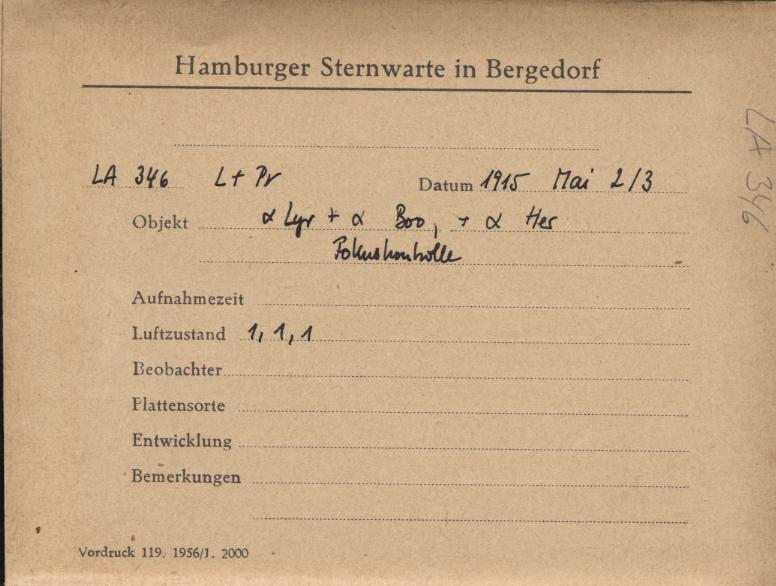 Hamburger Sternwarte in Bergedorf
LA 346 L + Pr Datum 1915 Mai 2/3
Objekt α Lyr + α Boo, + α Her
Fokuskontrolle
Aufnahmezeit
Luftzustand 1, 1, 1
Beobachter
Plattensorte
Entwicklung
Bemerkungen
Vordruck 119. 1956/1. 2000
LA 346